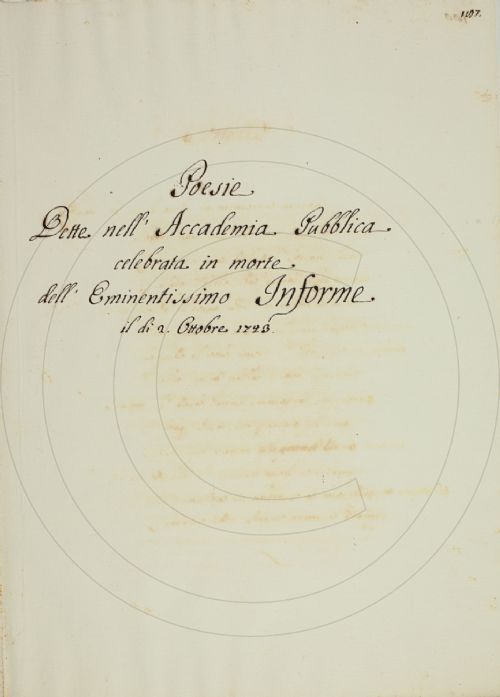 1107.
Poesie
Dette nell' Accademia Pubblica
celebrata in morte
dell' Eminentissimo Informe
il di 2. Ottobre 1723.